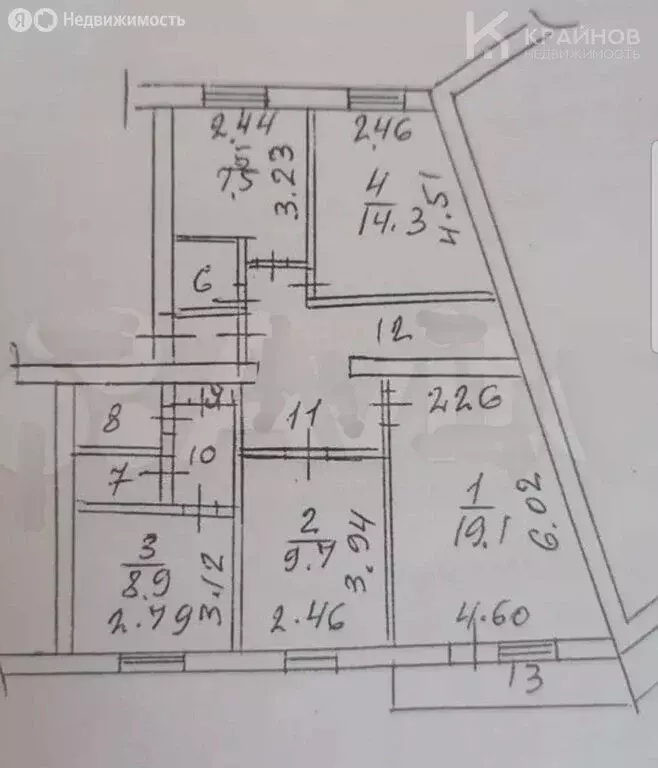 Я Недвижимость
КРАЙНОВ
НЕДВИЖИМОСТЬ
2.44
2.46
5
7.5
3.23
4
14.3
4.51
6
12
8
9
11
2.26
10
7
1
19.1
6.02
2
9.7
3.94
3
8.9
3.12
2.79
2.46
4.60
13